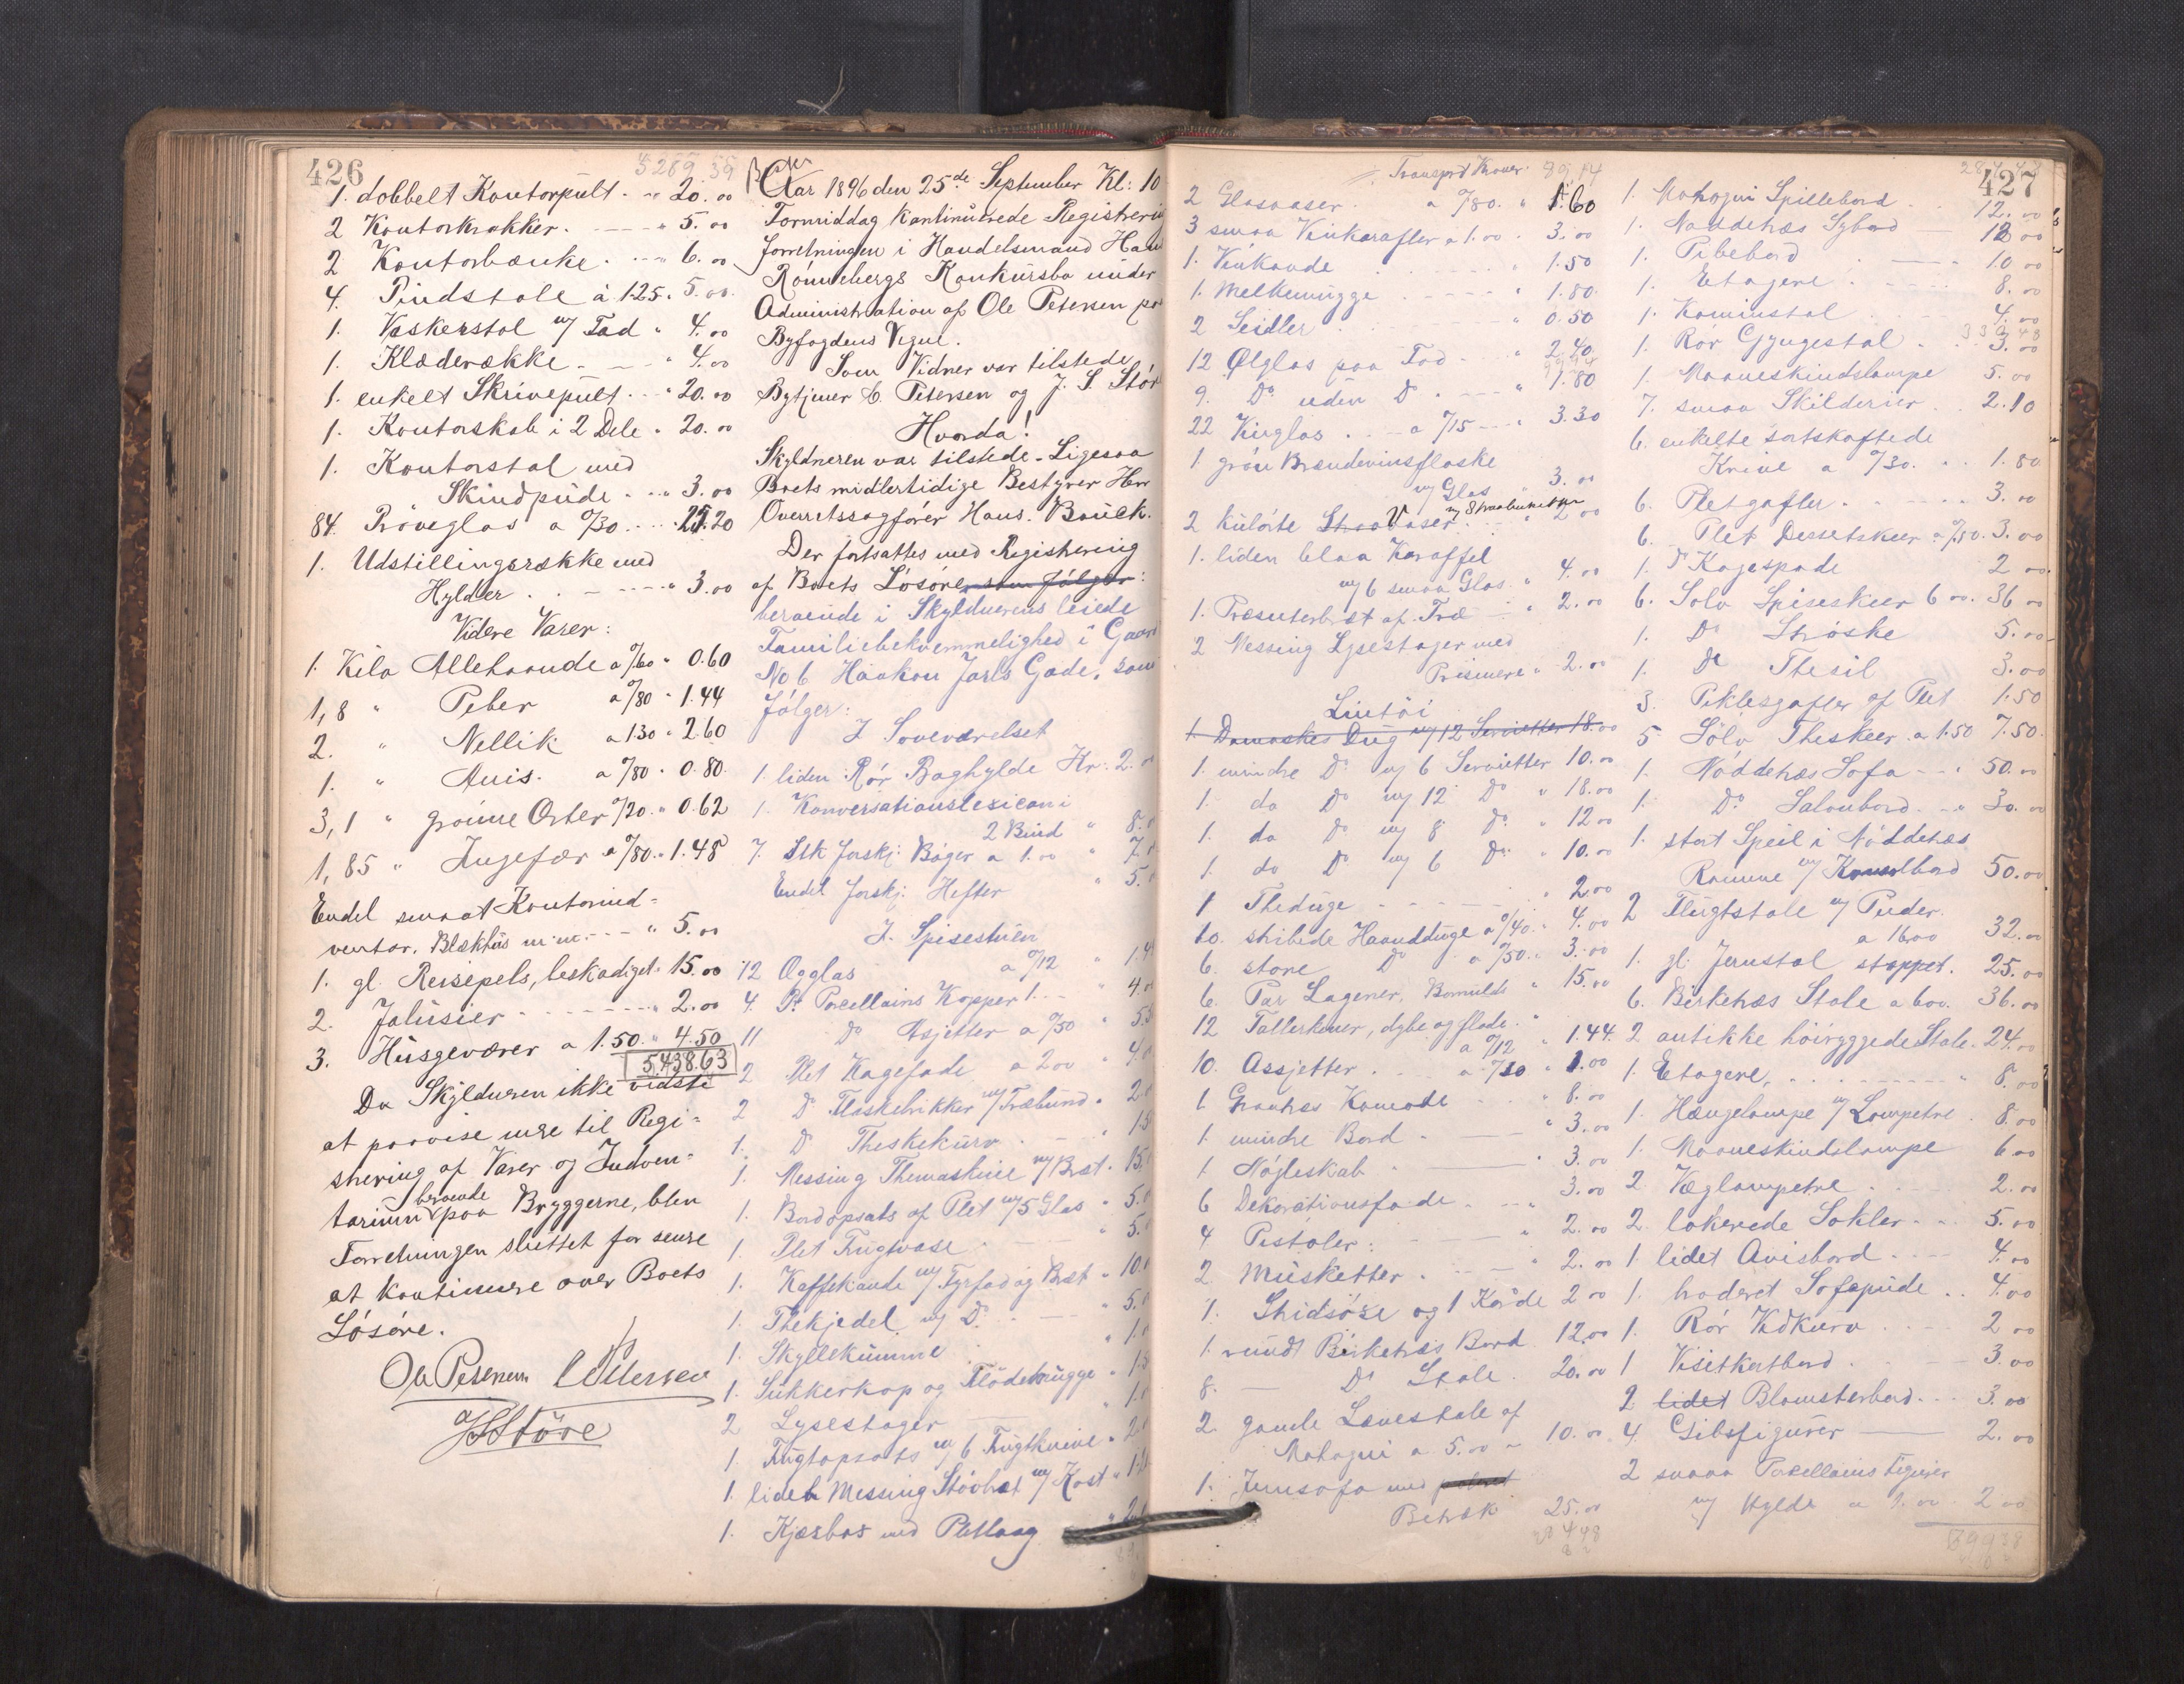 426
5289.59
1. dobbelt Kontorpult. - " 20.00
2 Kontorkrakker. - - - " 5.00
2 Kontorbænke. - - " 6.00
4. Pindstole à 1.25. " 5.00.
1. Vaskerstol m/ Fad " 4.00
1. Klæderække. - - - " 4.00
1. enkelt Skrivepult. - " 20.00
1. Kontorskab i 2 Dele " 20.00
1. Kontorstol med
Skindpude - - " 3.00
84. Prøveglas a 0/30. - - - 25.20
1. Udstillingsrække med
Hylder. - - - - " 3.00
Videre Varer:
1. Kilo Allehaande a 0/60 " 0.60
1,8 " Peber a 0/80 " 1.44
2. " Nellik a 1.30 " 2.60
1. " Anis. a 0/80 " 0.80.
3,1 " grønne Erter 0/20. " 0.62
1,85 " Ingefær a 0/80. " 1.48
Endel smaat Kontorind=
ventar. Blækhus m.m. - - - " 5.00
1. gl. Reisepels, beskadiget. " 15.00
2. Jalusier - - - - - - " 2.00
3. Husgeværer a 1.50. " 4.50
5.438.63
Da Skyldneren ikke vidste
at paavise mere til Regi=
strering af Varer og Inven=
tarium beroende paa Bryggerne, blev
Forretningen sluttet for senere
at kontinuere over Boets
Løsøre.
Ole Petersen C Petersen
J S Støre
Aar 1896 den 25de September Kl: 10
Formiddag kontinuerede Registrerin
forretningen i Handelsmand Han
Rønnebergs Konkursbo under
Administration af Ole Petersen paa
Byfogdens Vegne.
Som Vidner var tilstede
Bytjener C. Petersen og J. S. Stør
Hvorda!
Skyldneren var tilstede. Ligesaa
Boets midlertidige Bestyrer Herr
Overretssagfører Hans. Bauck.
Der fortsattes med Registrering
af Boets Løsøre, som følger:
beroende i Skyldnerens leiede
Familiebekvemmelighed i Gaard
No 6 Haakon Jarls Gade, som
følger:
I Soveværelset
1. liden Rør Boghylde Kr. 2.0
1. Konversationslexicon i
2 Bind " 8.0
7. Stk forskj. Bøger a 1.00 " 7.0
Endel forskj. Hefter " 5.0
I. Spisestuen
12 Ægglas a 0/12 " 1.4
4. Pr Porcellains Kopper 1. - " 4.0
11 Do Asjetter a 0/50 " 5.5
2 Plet Kagefade a 2.00 " 4.0
2 Do Flaskebrikker m/ Træbund " 2.0
1. Do Theskekurv. - " 1.5
1. Messing Themaskine m/ Bræt " 15.0
1. Bordopsats af Plet m/ 5 Glas " 5.0
1. Plet Frugtvase " 5.0
1. Kaffekande m/ Fyrfad og Bræt " 10.0
1. Thekjedel m/ Do. - " 5.0
1. Skyllekumme " 1.0
1. Sukkerkop og Flødemugge " 1.5
2 Lysestager " 1.0
1. Frugtopsats m/ 6 Frugtknive " 2.0
1. liden Messing Støvbræt m/ Kost " 1.2
1. Kjæsbos med Pletlaag " 2.0
Transport Kroner 89.14
2 Glasvaser. a 0/80. " 1.60
3 smaa Vinkarafler a 1.00 " 3.00
1. Vinkande " 1.50
1. Melkemugge - - - - " 1.80.
2 Seidler " 0.50
12 Ølglas paa Fod - " 2.40
9. Do uden Do " 1.80
22 Vinglas. - - a 0/15 - - " 3.30
1 grøn Brændevinsflaske
m/ Glas " 3.00
2 kulørte Straavaser. - " 2.00
1. liden blaa Karaffel
m/ 6 smaa Glas. " 4.00
1. Præsenterbræt af Træ - " 2.00
2 Messing Lysestager med
Prismere " 2.00
Lintøi
1. Damaskes Dug m/ 12 Servietter 18.00
1. mindre Do m/ 6 Servietter 10.00
1. do Do m/ 12 Do " 18.00
1. do Do m/ 8 Do. " 12.00
1. do Do m/ 6 Do " 10.00
1 Theduge - - - - - " 2.00
10. stribede Haandduge a 0/40. " 4.00
6. store Do a 0/50. " 3.00
6. Par Lagener, Bomulds " 15.00
12 Tallerkner, dybe og flade. "
a 0/12 " 1.44.
10. Assjetter. a 0/10 " 1.00
1 Graatræs Komode - - - " 8.00
1. mindre Bord - - - " 3.00
1 Nøgleskab " 3.00
6 Dekorationsfade - - - " 3.00
4 Pistoler. - - - " 2.00
2 Musketter. - - - " 2.00
1. Stridsøxe og 1 Kaarde 2.00
1. rundt Birketræs Bord 12.00
8. - Do Stole. 20.00
2. gamle Lænestole af
Mahogni a 5.00 " 10.00
1. Jernsofa med
Betræk 25.00
427
1. Mahogni Spillebord. 12.00
1. Nøddetræs Sybord 12.00
1. Pibebord. - - 10.00
1. Etagere. - - - - 8.00
1. Kaminstol. - - - 4.00
1. Rør Gyngestol. - - 3.00
1. Maaneskindslampe 5.00
7. smaa Skilderier. 2.10
6. enkelte sortskaftede
Knive a 0/30. - - 1.80.
6. Pletgafler. - - - - - 3.00
6. Plet Dessertskeer a 0/50. 3.00
1. Do Kagespade 2.00
6. Sølv Spiseskeer 6.00. 36.00
1. Do Strøske 5.00.
1. Do Thesil 3.00
3. Piklesgafler af Plet 1.50
5. Sølv Theskeer. a 1.50 7.50.
1. Nøddetræs Sofa - - " 50.00
1. Do. Salonbord. - " 30.00
1. stort Speil i Nøddetræs
Ramme m/ Konsolbord 50.00
2 Flugtstole m/ Puder.
a 16.00 32.00
1. gl. Jernstol stoppet. 25.00
6. Birketræs Stole a 6.00. 36.00
2 antikke høiryggede Stole. 24.00
1. Etagere, - - - - - - - " 8.00
1. Hængelampe m/ Lampetre. 8.00
1. Maaneskindslampe 6.00
2. Væglampetre. - - 2.00
2. lakerede Sokler. - - 5.00
1 lidet Avisbord. - - - 4.00
1. broderet Sofapude. . 4.00
1. Rør Vedkurv. - - - 2.00
1 Visitkortbord. - - - - 3.00
2 lidet Blomsterbord. - - 3.00
4. Gibsfigurer - 2.00
2 smaa Porcellains Figurer
m/ Hylde a 1.00 2.00